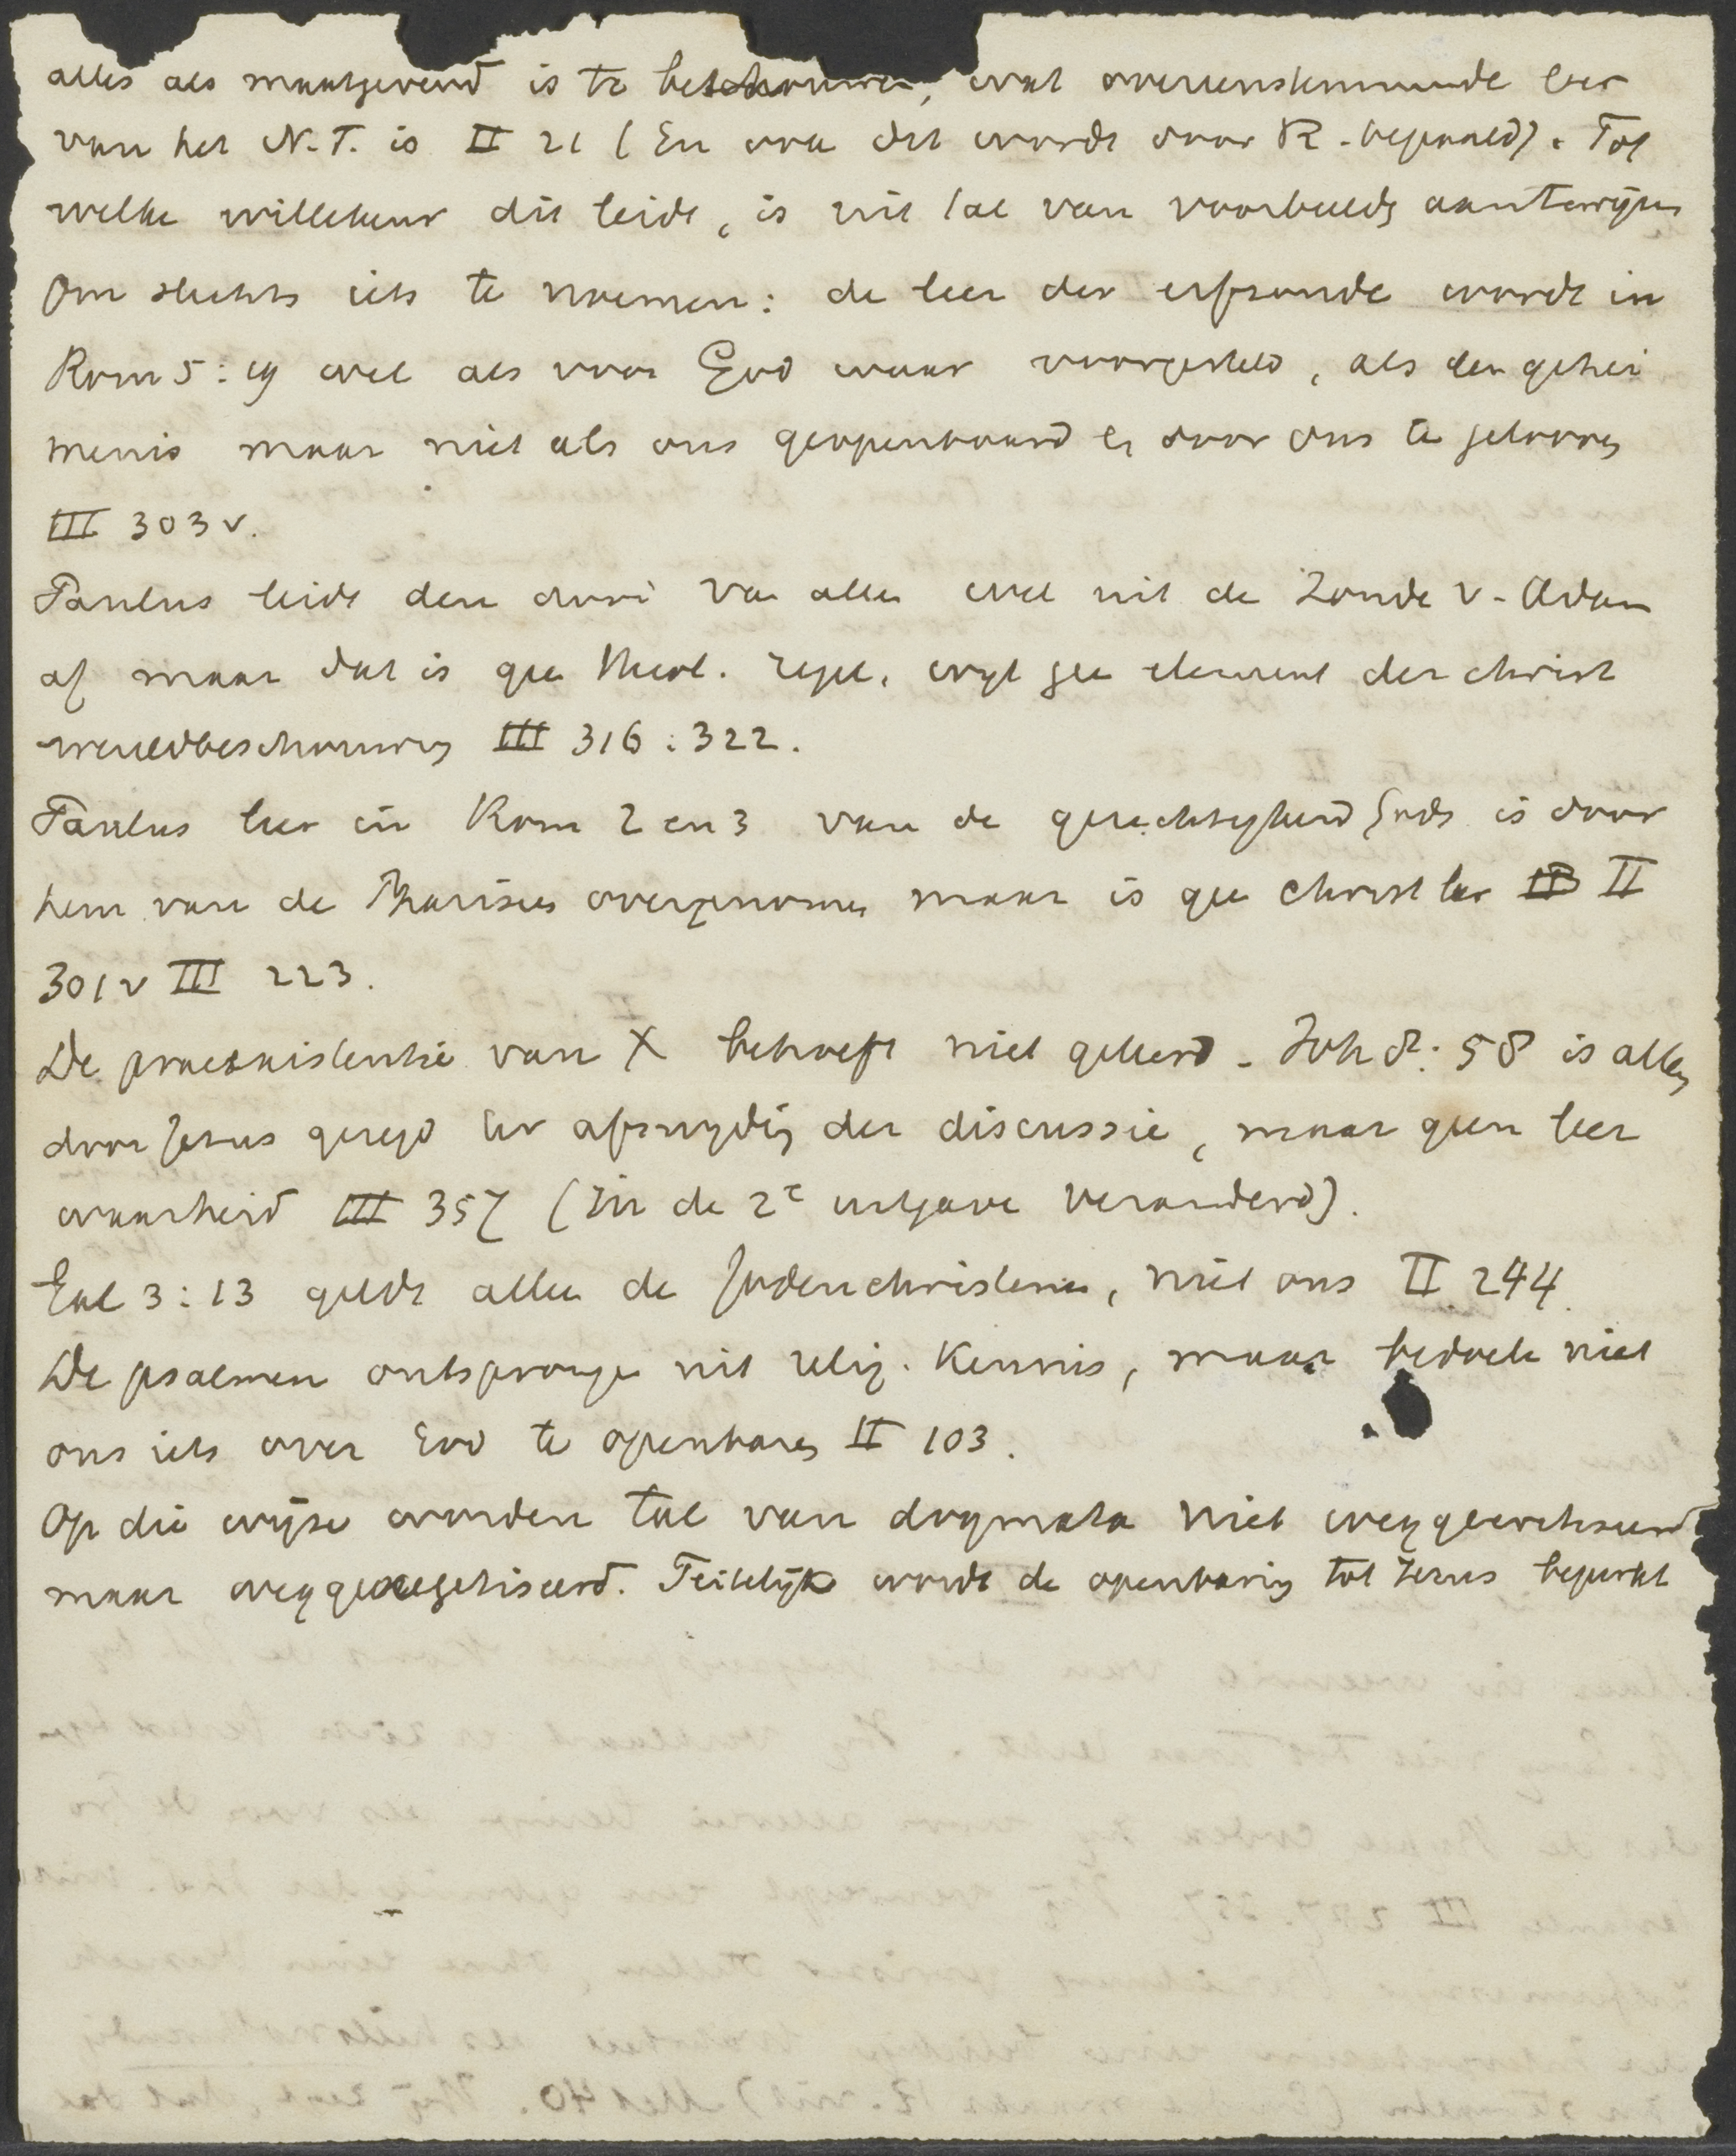 alles als maatgevend is te beschouwen, wat overeenstemmende leer
van het N.T. is II 21 (En wat dit wordt door R. bepaald). Tot
welke willekeur dit leidt, is uit tal van voorbeelden aan te wijzen
Om slechts iets te noemen: de leer der erfzonde wordt in
Rom 5:19 wel als voor God waar voorgesteld, als een gehei
menis maar niet als ons geopenbaard en door ons te gelooven
III 303 v.
Paulus leidt den dood van allen wel uit de zonde v. Adam
af maar dat is geen theol. regel, wijl geen element der christ
wereldbeschouwing III 316:322.
Paulus leer in Rom 2 en 3 van de gerechtigheid Gods is door
hem van de Phariseen overgenomen maar is geen christ leer II
301 v III 223.
De praeexistentie van X behoeft niet geleerd. Joh 8:58 is alleen
door Jezus gezegd ter afsnijding der discussie, maar geen leer
waarheid III 357 (In de 2e uitgave veranderd).
Gal 3:13 geldt alleen de Jodenchristenen, niet ons II 244.
De psalmen ontsprongen uit relig. kennis, maar bedoelen niet
ons iets over God te openbaren II 103.
Op die wijze worden tal van dogmata niet weg
maar weggeexegetiseerd. Feitelijk wordt de openbaring tot Jezus beperkt